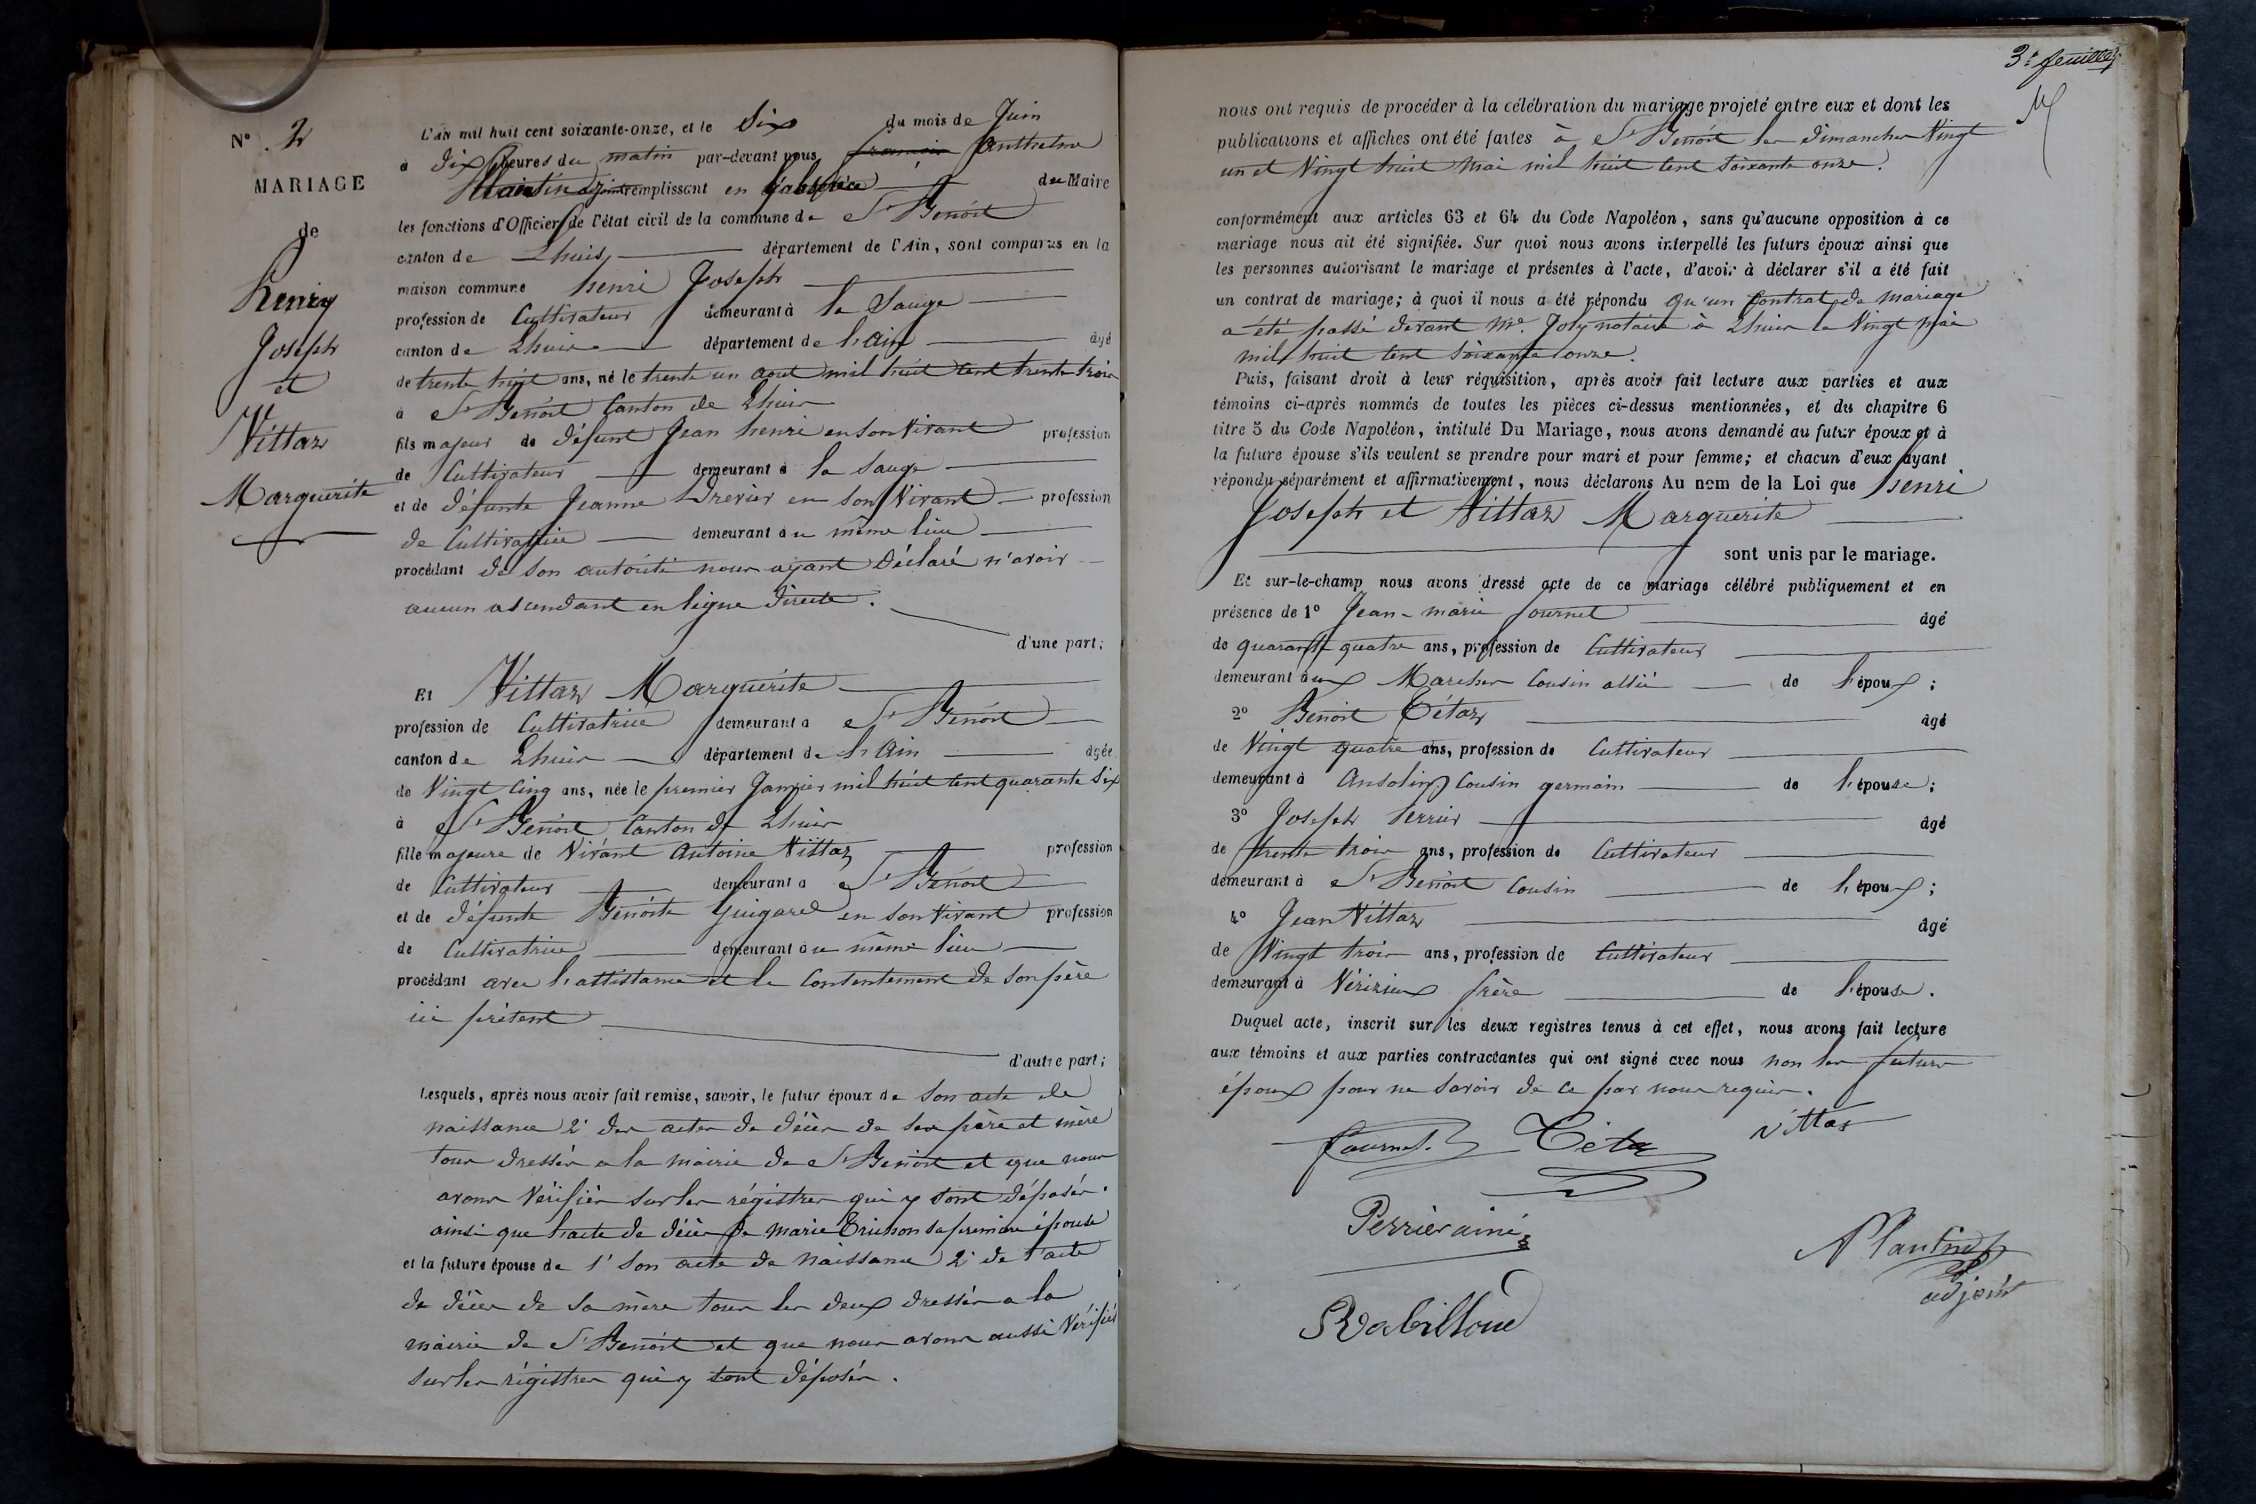 N° 2
MARIAGE
de
henry
Joseph
et
Vittaz
Marguerite
L'an mil huit cent soixante-onze, et le Six du mois de Juin
à dix heures du matin par-devant nous françois Anthelme
Plantin adjoint remplissant en l'absence du Maire
les fonctions d'Officier de l'état civil de la commune de St Benoit
canton de Lhuis département de l'Ain, sont comparus en la
maison commune henri Joseph
profession de Cultivateur demeurant à la Sauge
canton de Lhuis département de l'ain âgé
de trente sept ans, né le trente un aout mil huit cent trente trois
à St Benoit Canton de Lhuis
fils majeur de défunt Jean henri en son Vivant profession
de Cultivateur demeurant à la Sauge
et de défunte Jeanne en son Vivant profession
de Cultivatrice demeurant au même lieu
procédant de son autorité nous ayant Déclaré n'avoir
aucun ascendant en ligne directe.
d'une part;
Et Vittaz Marguerite
profession de Cultivatrice demeurant à St Benoit
canton de Lhuis département de l'Ain âgée
de Vingt Cinq ans, née le premier Janvier mil huit cent quarante Six
à St Benoit Canton de Lhuis
fille majeure de Vivant Antoine Vittaz profession
de Cultivateur demeurant à St Benoit
et de défunte Benoite Guigard en son Vivant profession
de Cultivatrice demeurant au même lieu
procédant avec l'assistance et le Consentement de son père
ici présent
d'autre part;
Lesquels, après nous avoir fait remise, savoir, le futur époux de Son acte de
naissance 2° des actes de décès de ses père et mère
tous dressés a la mairie de St Benoit et que nous
avons Vérifiés sur les régistres qui y sont déposés.
ainsi que l'acte de décès de marie sa première épouse
et la future épouse de 1° Son acte de naissance 2° de l'acte
de décès de sa mère tous les deux dressés a la
mairie de St Benoit et que nous avons aussi Vérifiés
sur les régistres qui y sont déposés.
3e feuillet
nous ont requis de procéder à la célébration du mariage projeté entre eux et dont les
publications et affiches ont été faites à St Benoit les dimanches Vingt
un et Vingt huit mai mil huit cent soixante onze.
conformément aux articles 63 et 64 du Code Napoléon, sans qu'aucune opposition à ce
mariage nous ait été signifiée. Sur quoi nous avons interpellé les futurs époux ainsi que
les personnes autorisant le mariage et présentes à l'acte, d'avoir à déclarer s'il a été fait
un contrat de mariage; à quoi il nous a été répondu qu'un Contrat de mariage
a été passé devant Me. Joly notaire à Lhuis le Vingt mai
mil huit cent soixante onze.
Puis, faisant droit à leur réquisition, après avoir fait lecture aux parties et aux
témoins ci-après nommés de toutes les pièces ci-dessus mentionnées, et du chapitre 6
titre 5 du Code Napoléon, intitulé Du Mariage, nous avons demandé au futur époux et à
la future épouse s'ils veulent se prendre pour mari et pour femme; et chacun d'eux ayant
répondu séparément et affirmativement, nous déclarons Au nom de la Loi que henri
Joseph et Vittaz Marguerite
sont unis par le mariage.
Et sur-le-champ nous avons dressé acte de ce mariage célébré publiquement et en
présence de 1° Jean-marie fournet âgé
de quarante quatre ans, profession de Cultivateur
demeurant aux Marches Cousin allié de l'époux;
2° Benoit Tétaz âgé
de Vingt quatre ans, profession de Cultivateur
demeurant à Ansolin Cousin germain de l'épouse;
3° Joseph Perrier âgé
de trente trois ans, profession de Cultivateur
demeurant à St Benoit Cousin de l'époux;
4° Jean Vittaz âgé
de Vingt trois ans, profession de Cultivateur
demeurant à Vérizieu frère de l'épouse.
Duquel acte, inscrit sur les deux registres tenus à cet effet, nous avons fait lecture
aux témoins et aux parties contractantes qui ont signé avec nous non les futurs
époux pour ne savoir de ce par nous requis.
fournet Tétaz Vittaz
Perrier ainé
Plantin
adjoint
Rabilloud